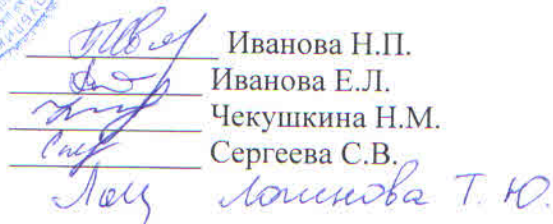 Иванова Н.П.
Иванова Е.Л.
Чекушкина Н.М.
Сергеева С.В.
Т. Ю.